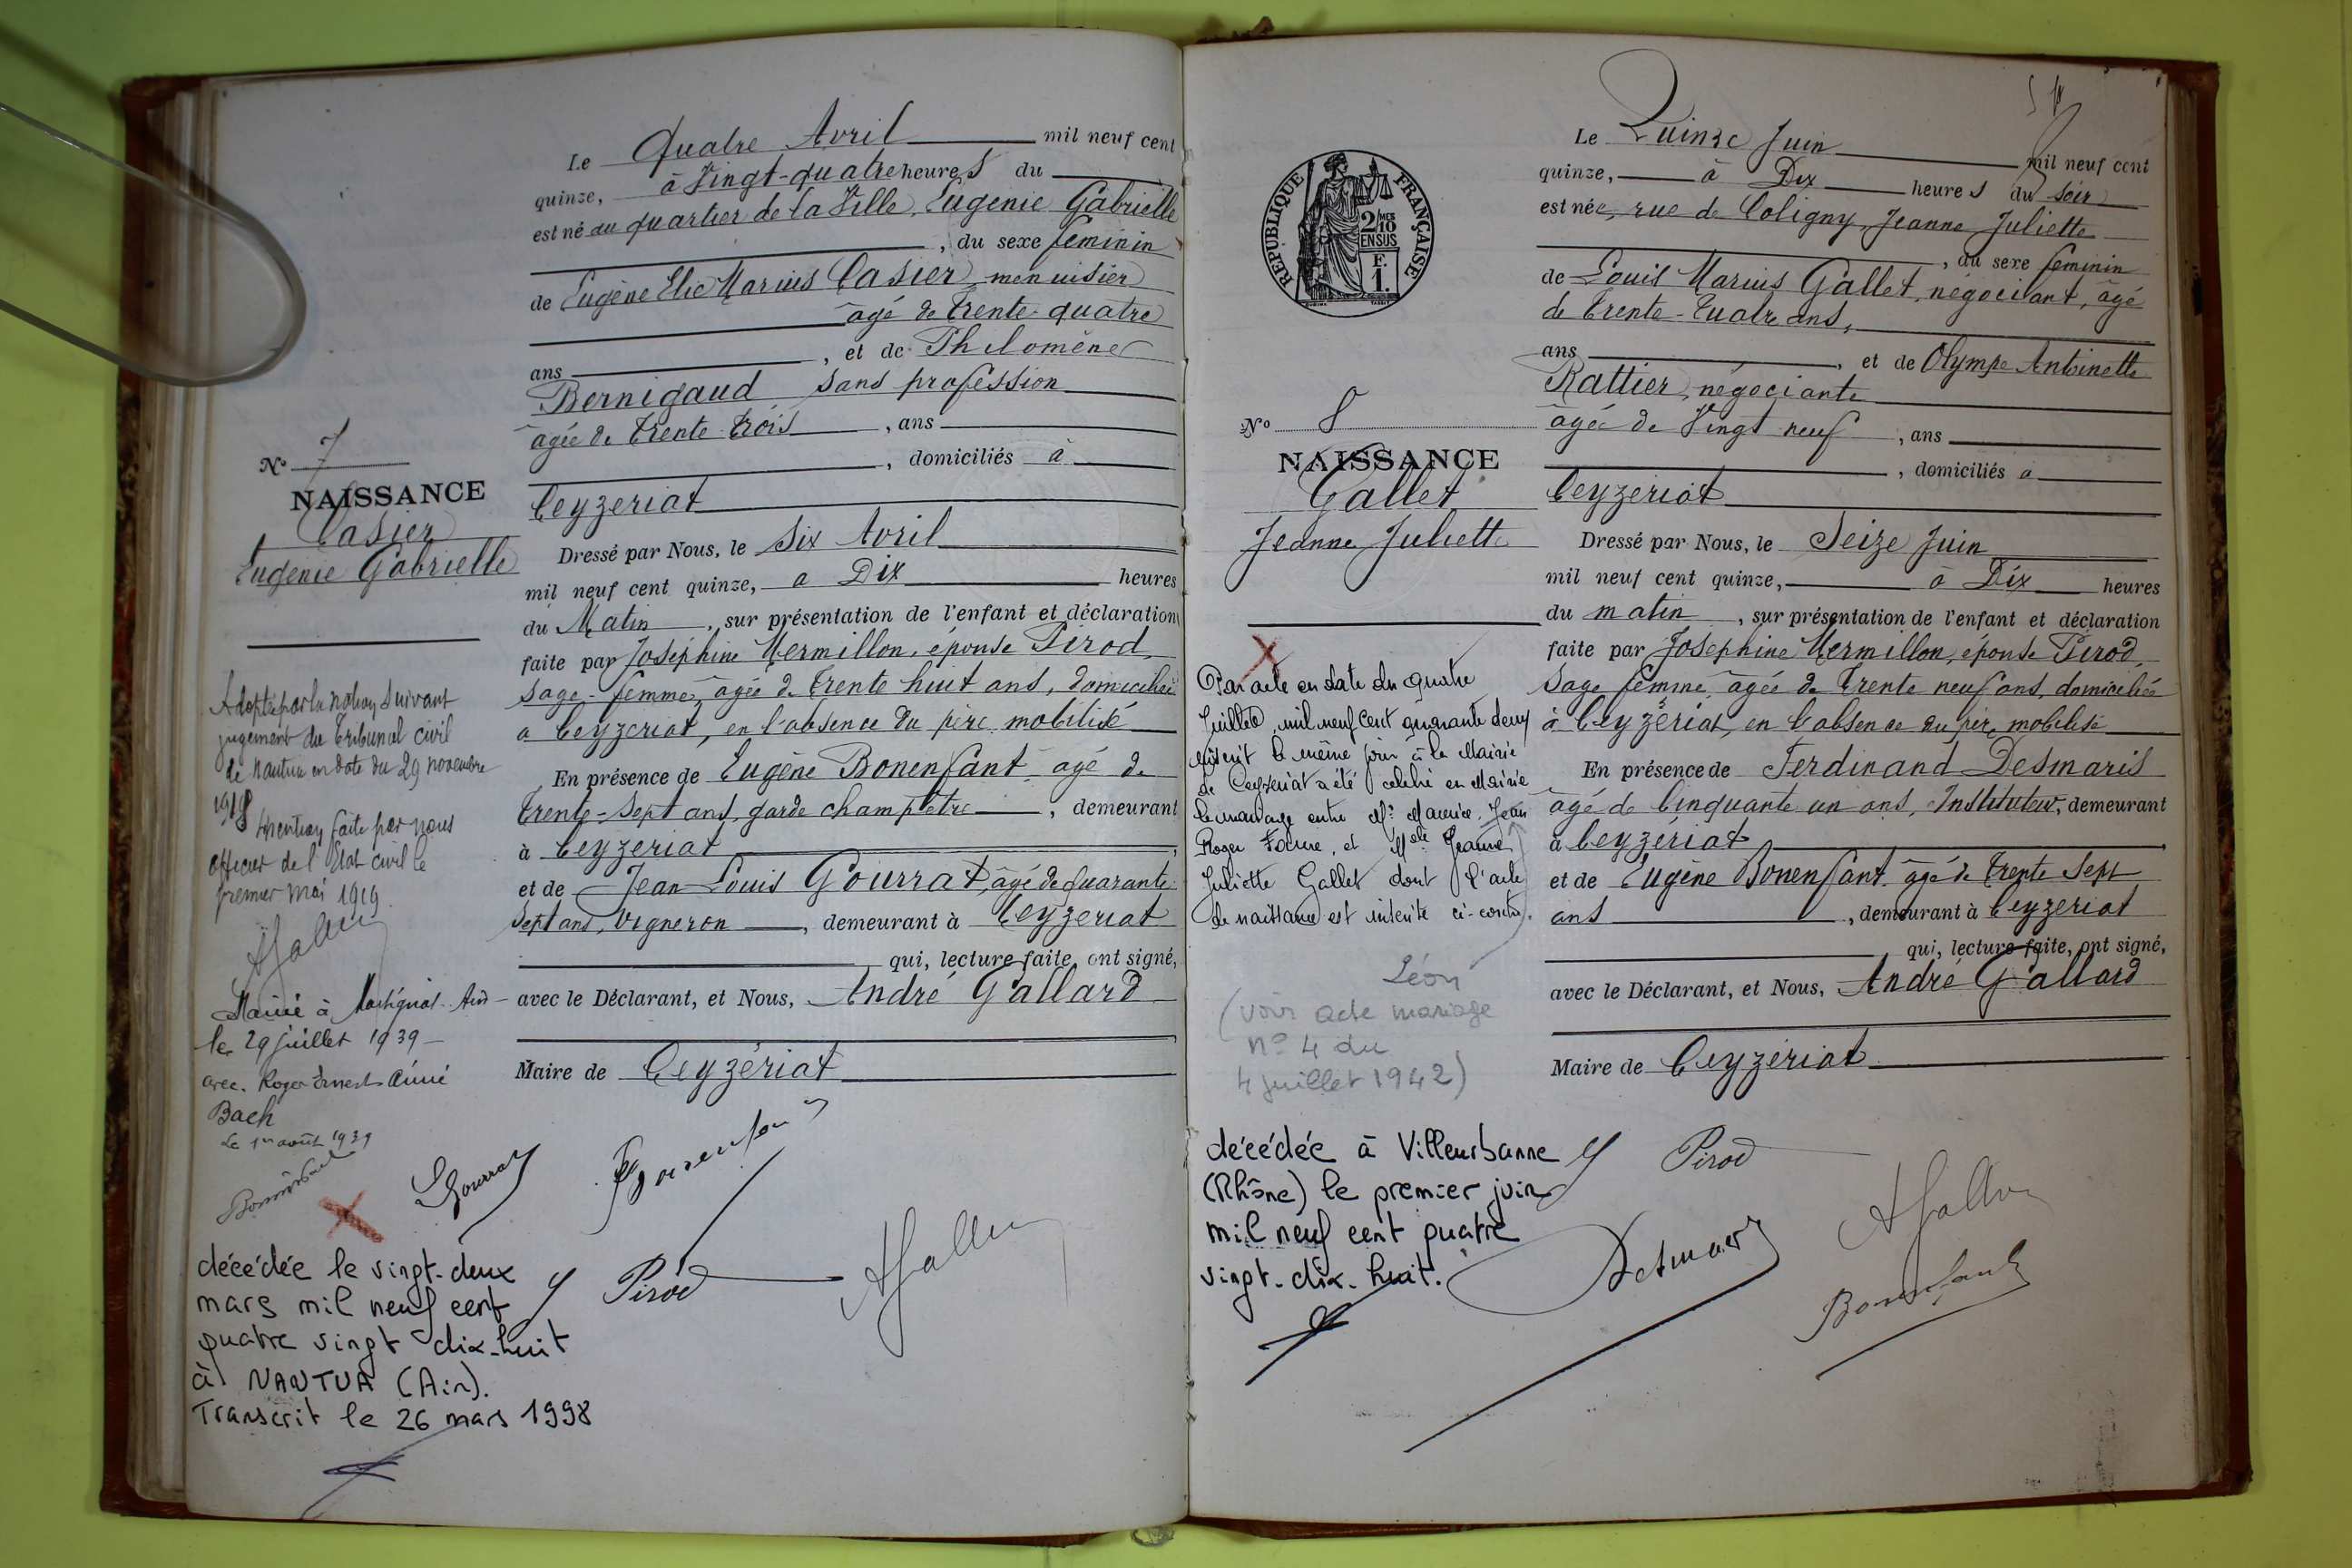 Le Quatre Avril mil neuf cent
quinze, à Vingt-quatre heures du
est né au quartier de la Ville, Eugénie Gabrielle
, du sexe feminin
de Eugène Elie Marius Casier, menuisier
âgé de trente-quatre
ans , et de Philomène
Bernigaud sans profession
âgée de trente-trois , ans
, domiciliés à
Ceyzeriat
Dressé par Nous, le Six Avril
mil neuf cent quinze, a Dix heures
du Matin , sur présentation de l'enfant et déclaration
faite par Joséphine Mermillon, épouse Pirod,
sage-femme, âgée de trente huit ans, domiciliée
a Ceyzeriat, en l'absence du père mobilisé
En présence de Eugène Bonenfant âgé de
trente-sept ans, garde champêtre , demeurant
à Ceyzeriat
et de Jean Louis Gourrat, âgé de quarante
sept ans, vigneron , demeurant à Ceyzeriat
qui, lecture faite, ont signé,
avec le Déclarant, et Nous, André Gallard
Maire de Ceyzériat
No 7
NAISSANCE
Casier
Eugénie Gabrielle
Adoptée par la nation suivant
jugement du tribunal civil
de Nantua en date du 29 novembre
1918 Mention faite par nous
officier de l'Etat civil le
premier mai 1919.
Mariée à Martignat Ain
le 29 juillet 1939
avec Roger Ernest Aimé
Bach
Le 1er août 1939
Gourrat
Bonenfant
Pirod
décédée le vingt-deux
mars mil neuf cent
quatre vingt dix-huit
à NANTUA (Ain).
Transcrit le 26 mars 1998
RÉPUBLIQUE FRANÇAISE
2/10 MES
EN SUS
F.
1.
Le Quinze Juin mil neuf cent
quinze, à Dix heures du soir
est née, rue de Coligny, Jeanne Juliette
, du sexe feminin
de Louis Marius Gallet, négociant, âgé
de trente-quatre ans,
ans , et de Olympe Antoinette
Rattier, négociante
âgée de Vingt neuf , ans
, domiciliés a
Ceyzériat
Dressé par Nous, le Seize Juin
mil neuf cent quinze, à Dix heures
du matin , sur présentation de l'enfant et déclaration
faite par Joséphine Mermillon, épouse Pirod,
sage femme, âgée de trente neuf ans, domiciliée
à Ceyzériat, en l'absence du père mobilisé
En présence de Ferdinand Desmaris
âgé de cinquante un ans, Instituteur, demeurant
à Ceyzériat
et de Eugène Bonenfant âgé de trente sept
ans , demeurant à Ceyzeriat
qui, lecture faite, ont signé,
avec le Déclarant, et Nous, André Gallard
Maire de Ceyzériat
No 8
NAISSANCE
Gallet
Jeanne Juliette
Par acte en date du quatre
Juillet mil neuf cent quarante deux
inscrit le même jour à la Mairie
de Ceyzériat a été célébré en Mairie
le mariage entre Mr Maurice Jean
Roger et Melle Jeanne
Juliette Gallet dont l'acte
de naissance est inscrit ci-contre.
Léon
(voir acte mariage
n° 4 du
4 juillet 1942)
décédée à Villeurbanne
(Rhône) le premier juin
mil neuf cent quatre
vingt-dix-huit.
Pirod
Desmaris
Bonenfant